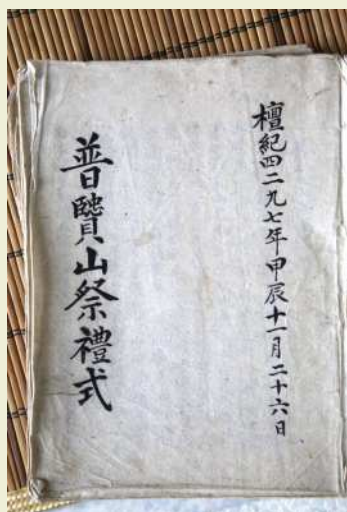 檀紀四二九七年甲辰十一月二十六日
普賢山祭禮式